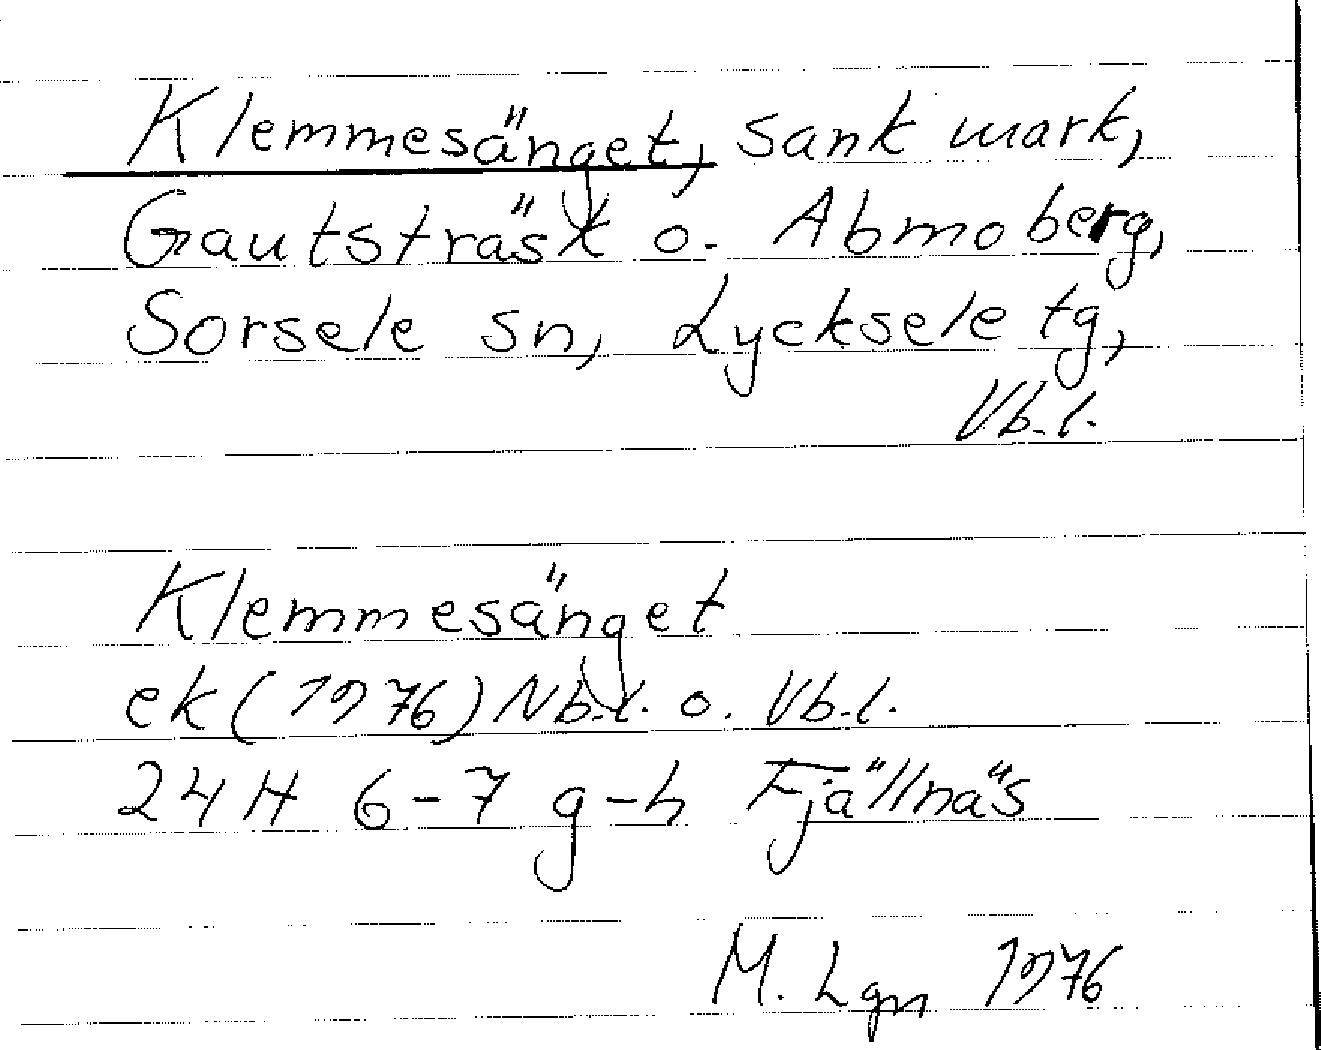 Klemmesänget, sank mark,
Gautsträsk o. Abmoberg,
Sorsele sn, Lycksele tg,
Vb.l.
Klemmesänget
ek (1976) Nb.l. o. Vb.l.
24H 6-7 g-h Fjällnäs
M. Lgn 1976